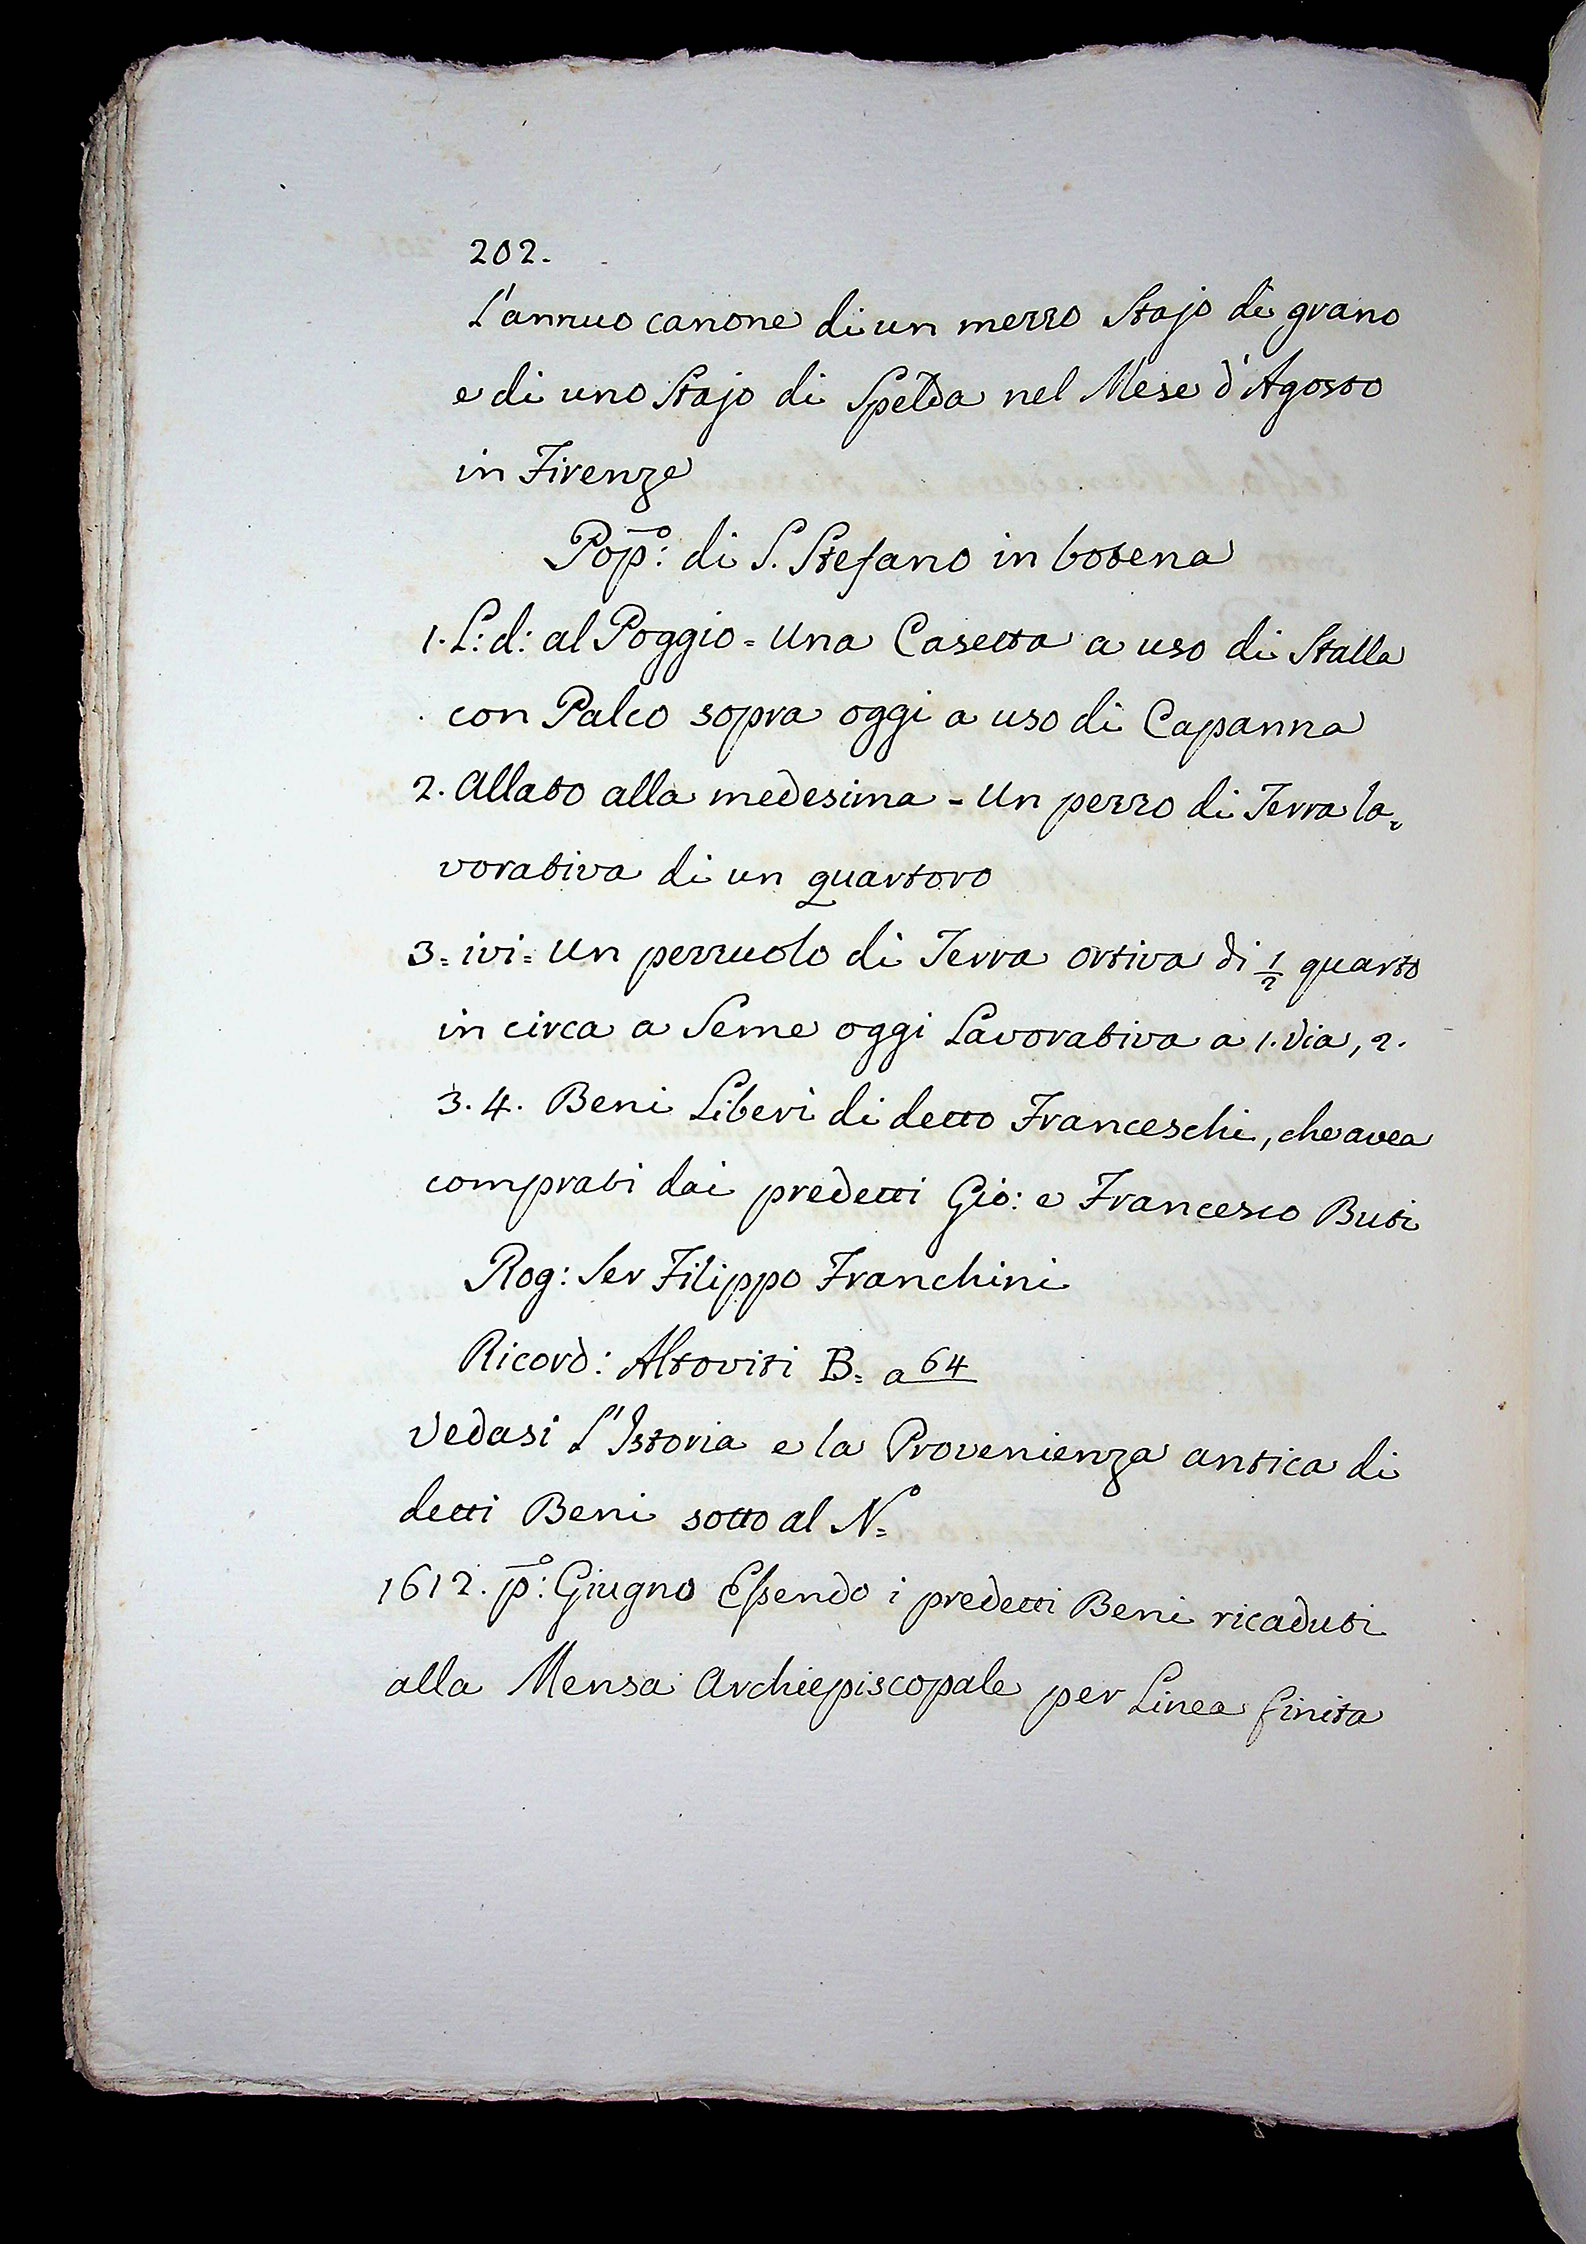 202.
L'annuo canone di un mezzo Stajo di grano
e di uno Stajo di Spelda nel Mese d'Agosto
in Firenze
Pop.º: di S. Stefano in botena
1. L: d: al Poggio = Una Casetta a uso di Stalla
con Palco sopra oggi a uso di Capanna
2. Allato alla medesima = Un pezzo di Terra la=
vorativa di un quartoro
3. = ivi = Un pezzuolo di Terra ortiva di 1/2 quarto
in circa a Seme oggi Lavorativa a 1. Via, 2.
3. 4. Beni Liberi di detto Franceschi, che avea
comprati dai predetti Gio: e Francesco Buti
Rog: Ser Filippo Franchini
Ricord: Altoviti B= a 64
Vedasi L'Istoria e la Provenienza antica di
detti Beni sotto al Nº=
1612. pº: Giugno Essendo i predetti Beni ricaduti
alla Mensa Archiepiscopale per Linea finita